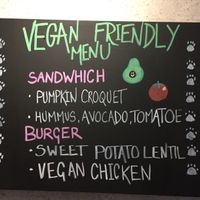 VEGAN FRIENDLY
MENU
SANDWHICH
• PUMPKIN CROQUET
• HUMMUS, AVOCADO, TOMATOE
BURGER
• SWEET POTATO LENTIL
• VEGAN CHICKEN